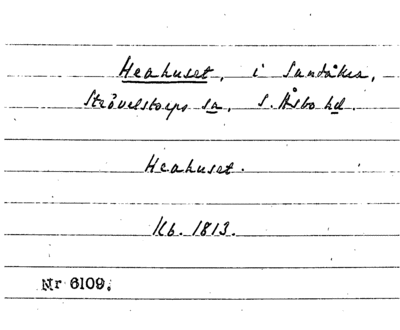 Heahuset, i Sandåkra,
Strövelstorps sn, S. Åsbo hd.
Heahuset.
Kb. 1813.
Nr 6109.